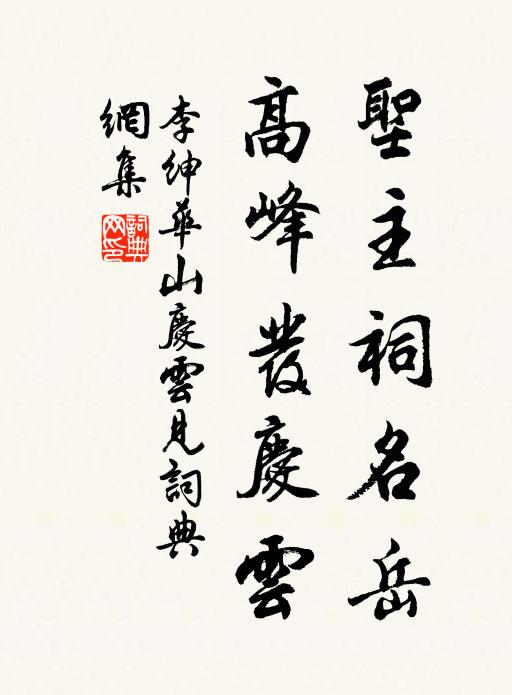 聖主祠名岳
高峰發慶雲
李紳華山慶雲見詞典
網集
詞典网印